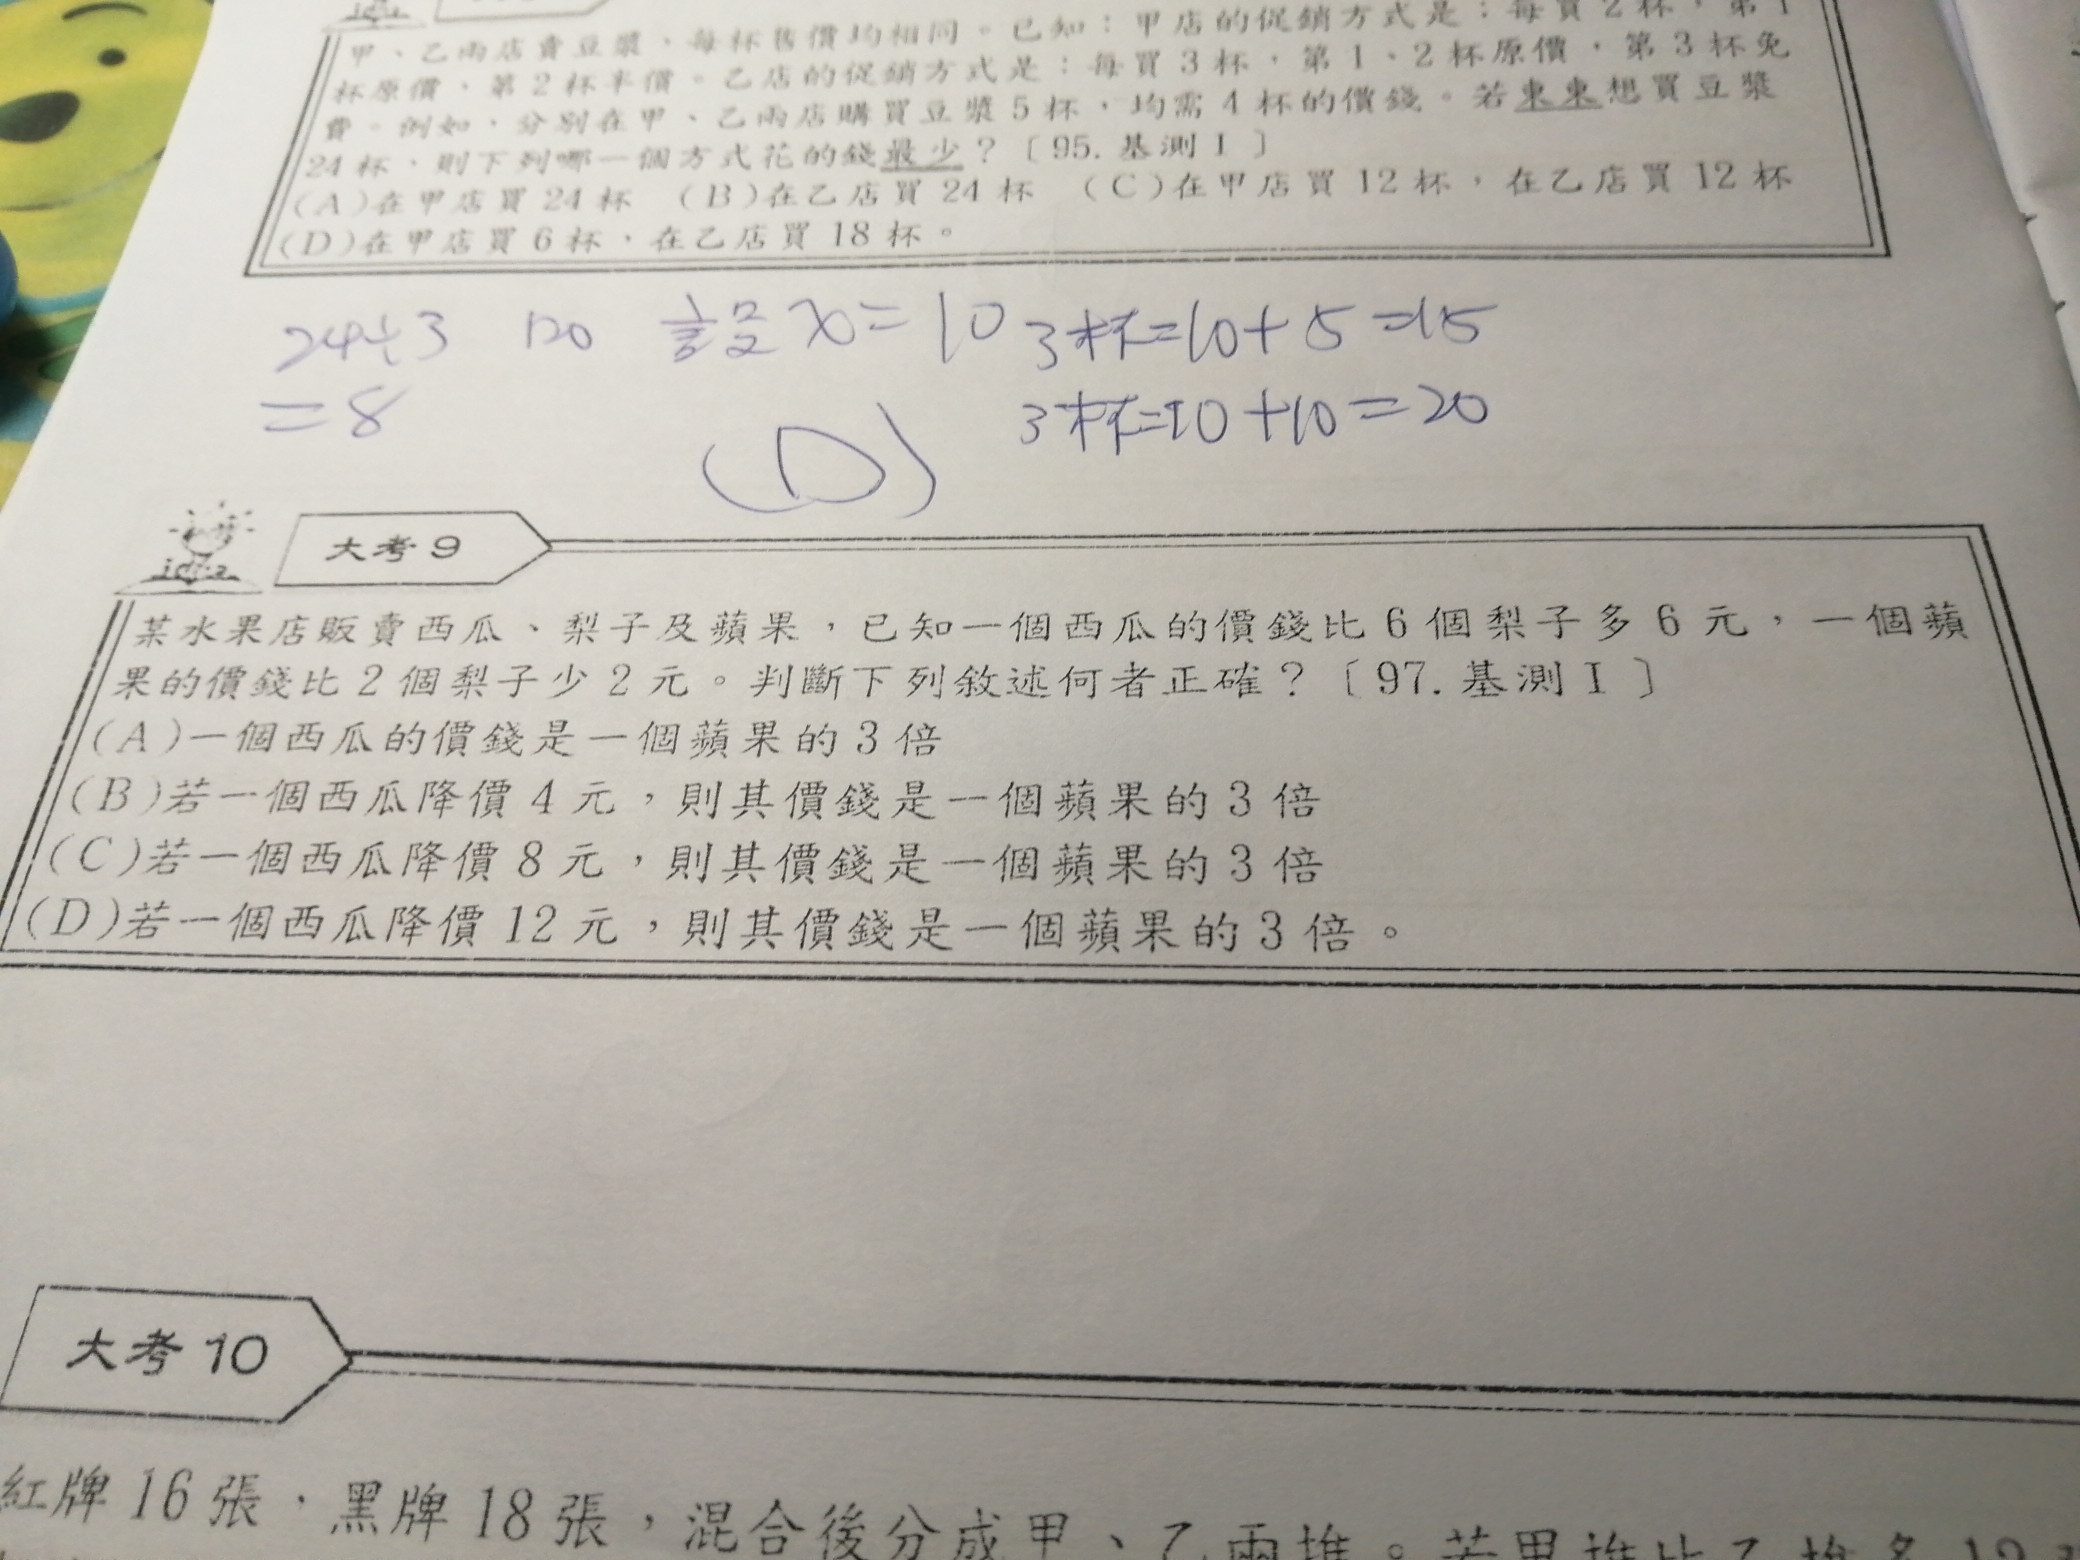 甲、乙兩店賣豆漿、每杯售價均相同。已知：甲店的促銷方式是：每買2杯，第1
杯原價、第2杯半價。乙店的促銷方式是：每買3杯，第1、2杯原價，第3杯免
費。例如，分別在甲、乙兩店購買豆漿5杯，均需4杯的價錢。若東東想買豆漿
24杯、則下列哪一個方式花的錢最少？〔95.基測I〕
(A)在甲店買24杯 (B)在乙店買24杯 (C)在甲店買12杯，在乙店買12杯
(D)在甲店買6杯，在乙店買18杯。
24÷3 120 設x=10 3杯=10+5=15
=8 (D) 3杯=10+10=20
idea
大考9
某水果店販賣西瓜、梨子及蘋果，已知一個西瓜的價錢比6個梨子多6元，一個蘋
果的價錢比2個梨子少2元。判斷下列敘述何者正確？〔97.基測I〕
(A)一個西瓜的價錢是一個蘋果的3倍
(B)若一個西瓜降價4元，則其價錢是一個蘋果的3倍
(C)若一個西瓜降價8元，則其價錢是一個蘋果的3倍
(D)若一個西瓜降價12元，則其價錢是一個蘋果的3倍。
大考10
紅牌16張，黑牌18張，混合後分成甲、乙兩堆。若甲堆比乙堆多12